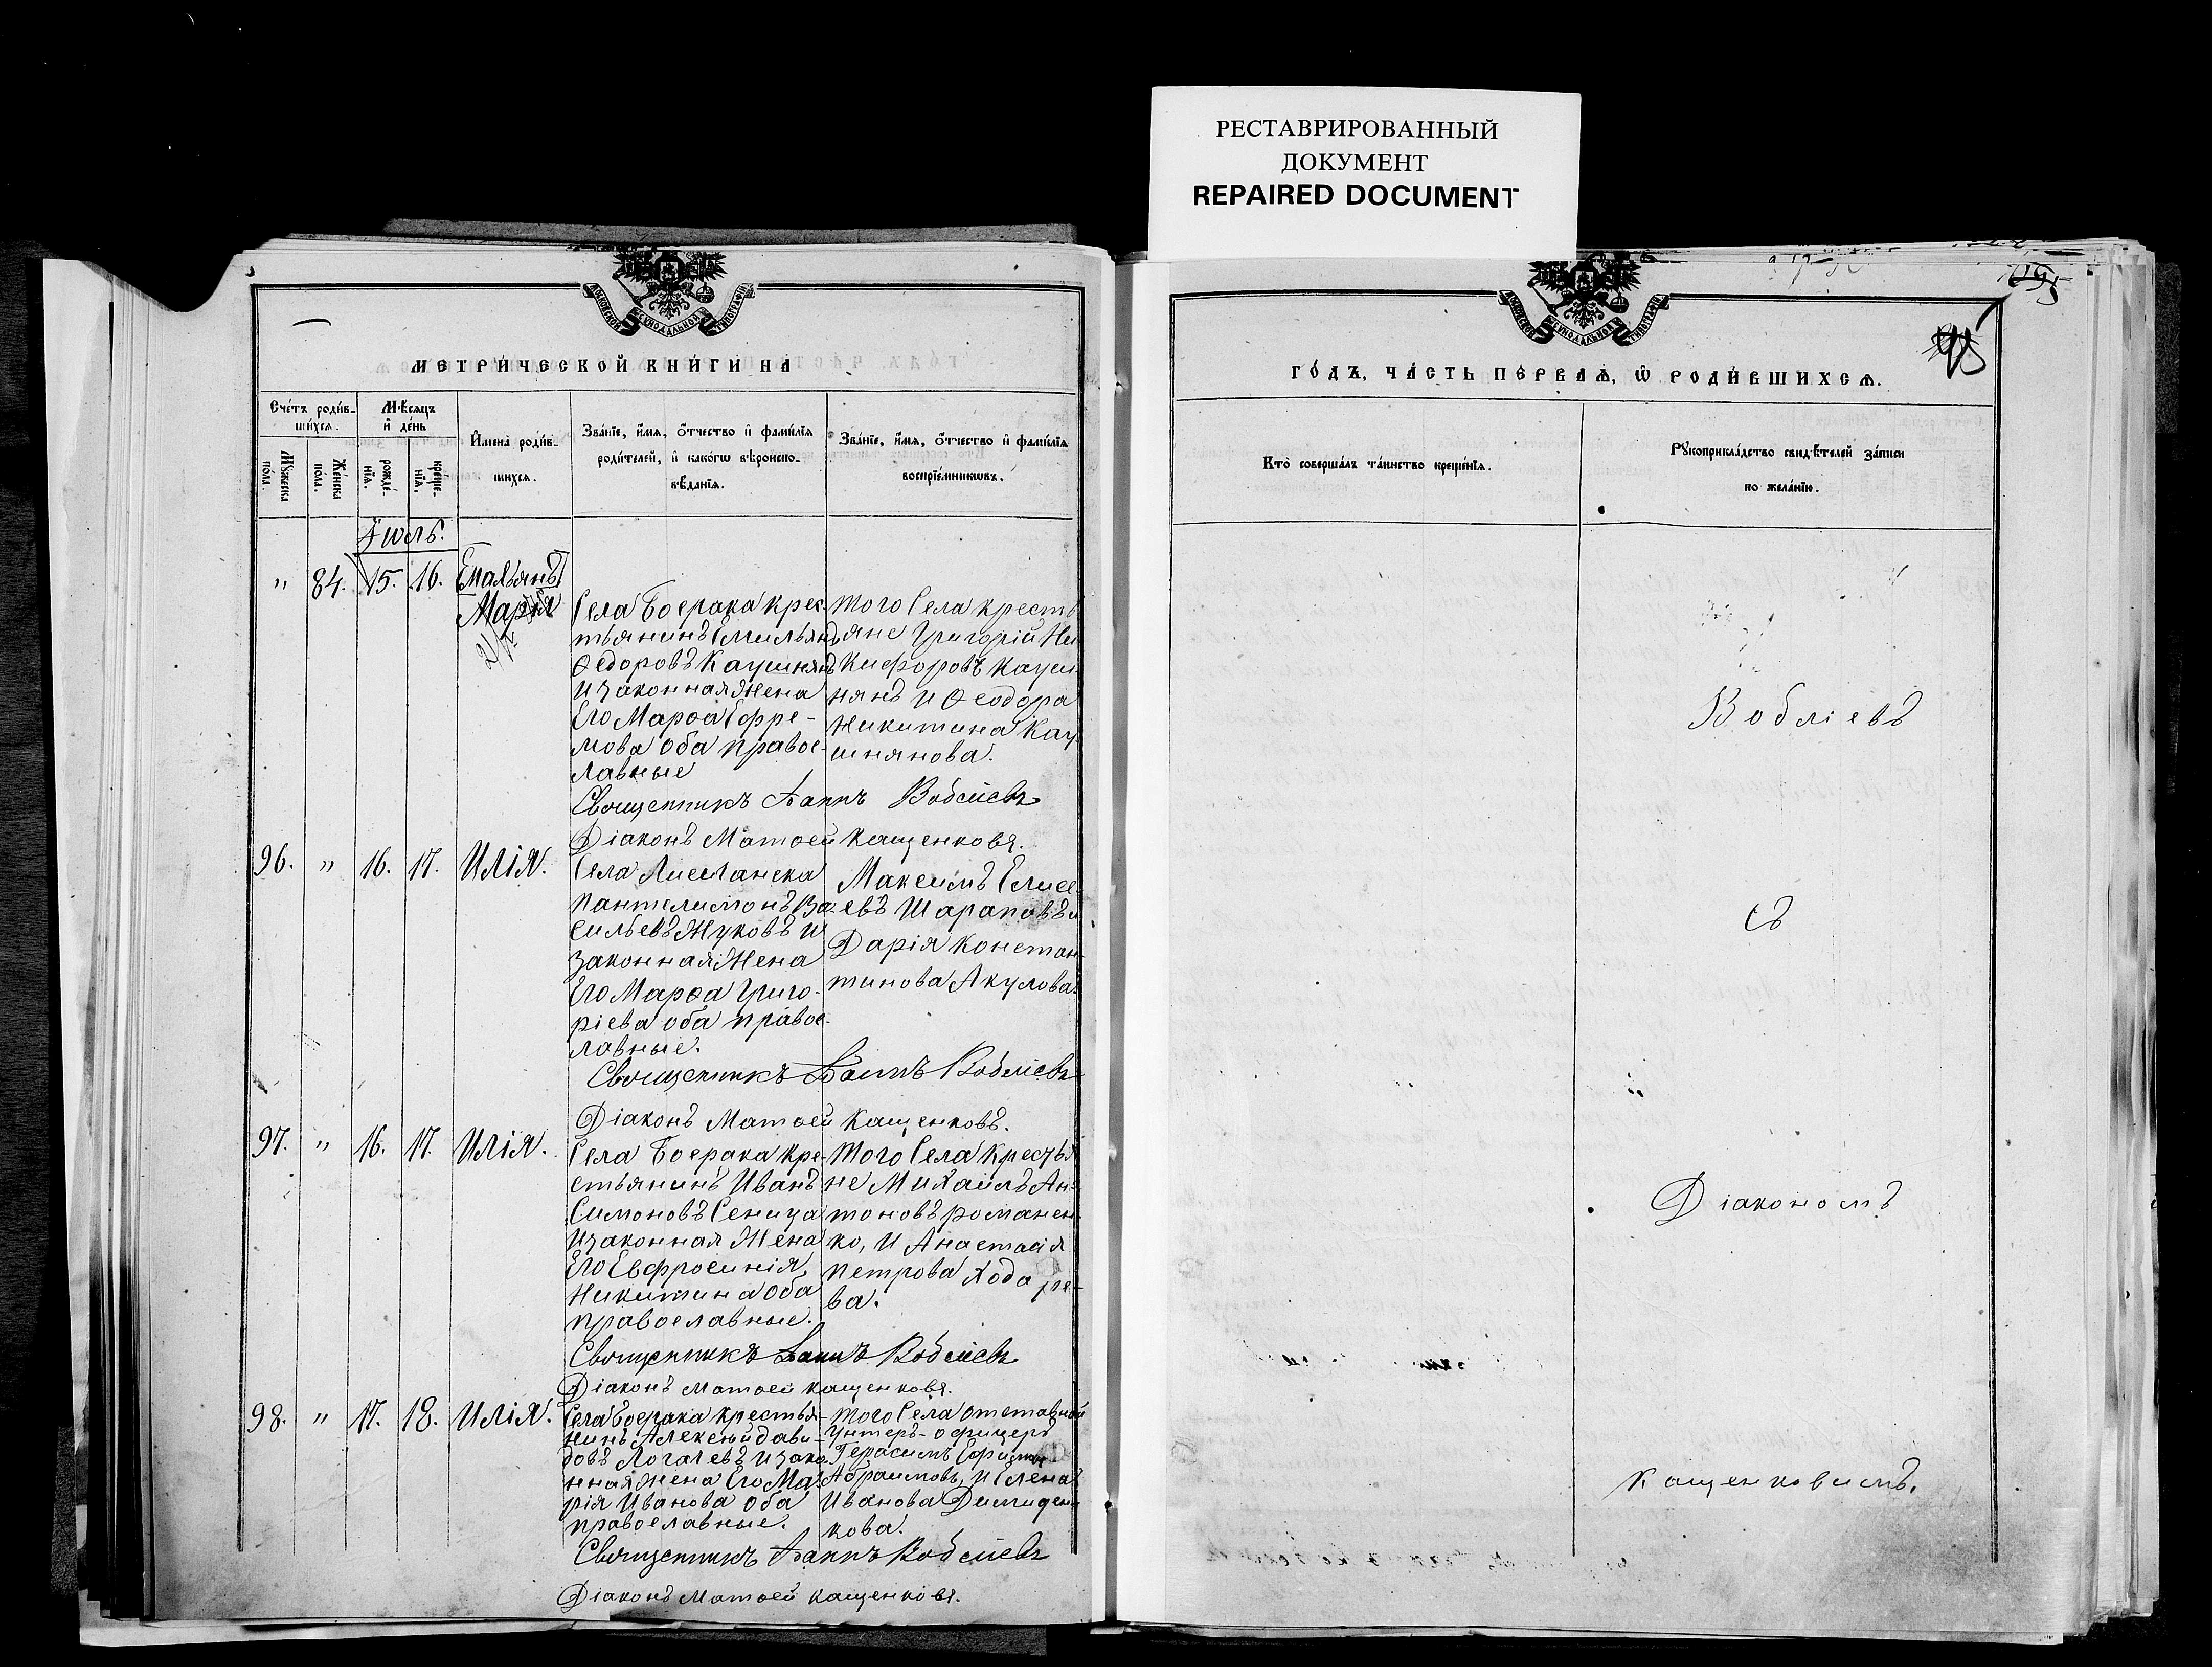 РЕСТАВРИРОВАННЫЙ
ДОКУМЕНТ
REPAIRED DOCUMENT
МЕТРИ́ЧЕСКОЙ КНИ́ГИ НА
Сче́тъ роди́в-
шихся.
Мѣсяцъ
и де́нь
Мꙋ́жеска
по́ла.
Же́нска
по́ла.
рожде́-
нїѧ.
креще́-
нїѧ.
Имена̀ роди́в-
шихся.
Зва́нїе, и́мя, о́тчество и фами́лїѧ
роди́телей, и како́гѡ вѣроиспо-
вѣ́данїѧ.
Зва́нїе, и́мя, о́тчество и фами́лїѧ
воспрїе́мникѡвъ.
Іюль.
" 84. 15. 16.
Марія
Села Боерака крес-
тьянинъ Емильянъ
Ѳедоровъ Каушнянъ
и законная жена
Его Марѳа Ефре-
мова оба правос-
лавные
Того Села кресть
яне Григорій Ни
кифоровъ Кауш-
нянъ и Ѳеодора
Никитина Кау-
шнянова.
Священникъ Іоаннъ Воблiевъ
Діаконъ Матѳей Кащенковъ.
96. " 16. 17. Илія.
Села
Пантелимонъ Ва-
сильевъ Жуковъ и
законная жена
Его Марѳа Григо-
ріева оба правос-
лавные.
Максимъ Елисе-
евъ Шараповъ и
Дарія Констан-
тинова Акулова.
Священникъ Іоаннъ Воблiевъ
Діаконъ Матѳей Кащенковъ.
97. " 16. 17. Илія.
Села Боерака кре-
стьянинъ Иванъ
Симоновъ Сеница
и законная жена
Его Евфросинія
Никитина оба
православные.
Того Села крестья
не Михаилъ Ан-
тоновъ Романен-
ко, и Анастасія
Петрова Ходаре-
ва.
Священникъ Іоаннъ Воблiевъ
Діаконъ Матѳей Кащенковъ.
98. " 17. 18. Илія.
Села Боерака крестья-
нинъ Алексѣй Дави-
довъ Логачевъ и зако-
нная жена Его Ма-
рія Иванова оба
православные.
Того Села отставной
Унтеръ-офицеръ
Герасимъ
Абраимовъ, и Елена
Иванова Демиден-
кова.
Священникъ Іоаннъ Воблiевъ
Діаконъ Матѳей Кащенковъ.
ГО́ДЪ, ЧА́СТЬ ПЕ́РВАѦ, Ѡ҆ РОДИ́ВШИХСѦ.
Кто̀ соверша́лъ та́инство креще́нїѧ.
Рꙋкоприкла́дство свидѣ́телей за́писи
по жела́нїю.
Воблiевъ
съ
Діакономъ
Кащенковымъ.